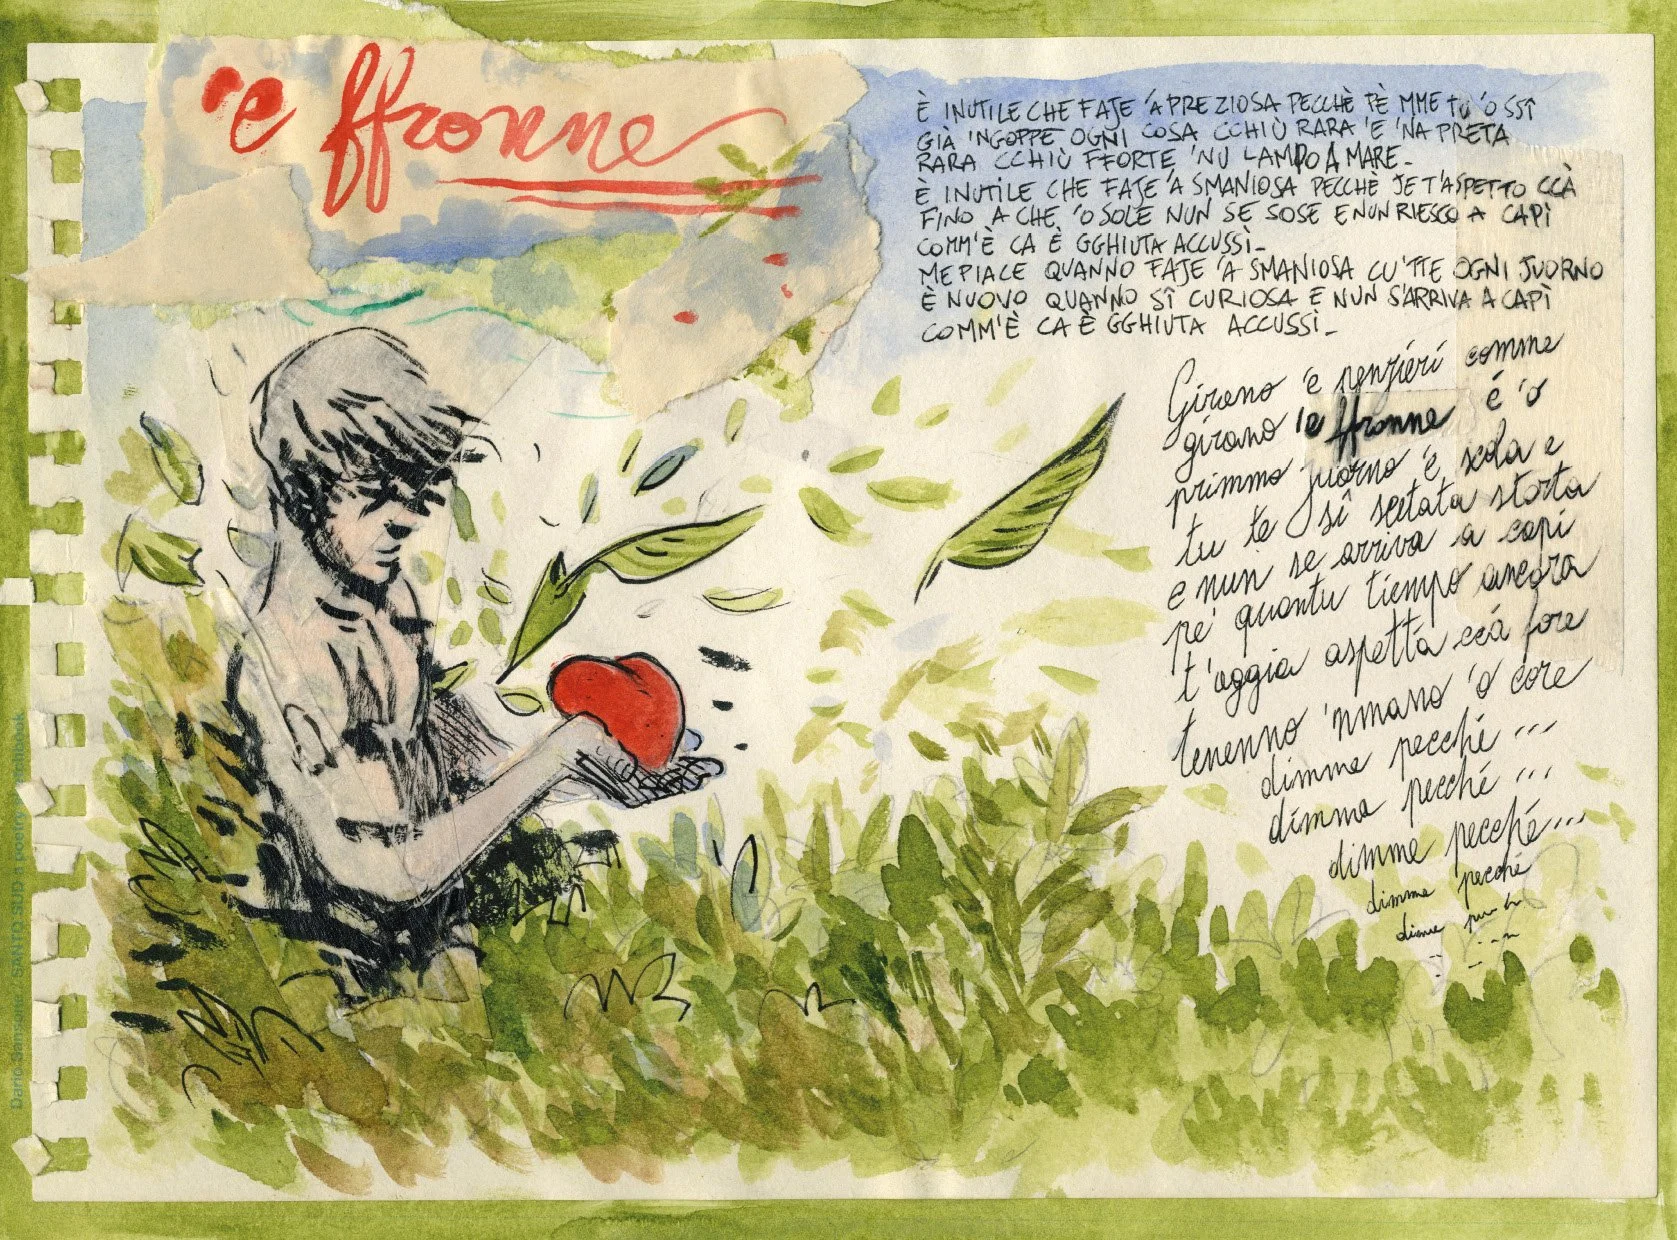 'e ffronne
È INUTILE CHE FAJE 'A PREZIOSA PECCHÈ PÈ MME TU 'O SSÎ
GIÀ 'NGOPPE OGNI COSA CCHIÙ RARA 'E 'NA PRETA
RARA CCHIÙ FFORTE 'NU LAMPO A MARE_
È INUTILE CHE FAJE 'A SMANIOSA PECCHÈ JE T'ASPETTO CCÀ
FINO A CHE 'O SOLE NUN SE SOSE E NUN RIESCO A CAPÌ
COMM'È CA È GGHIUTA ACCUSSÌ_
ME PIACE QUANNO FAJE 'A SMANIOSA CU 'TTE OGNI JUORNO
È NUOVO QUANNO SÎ CURIOSA E NUN S'ARRIVA A CAPÌ
COMM'È CA È GGHIUTA ACCUSSÌ_
Girano 'e penzieri comme
girano 'e ffronne é 'o
primmo juorno 'e scola e
tu te sî scetata storta
e nun se arriva a capí
pe' quantu tiempo ancora
t'aggia aspettá ccá fore
tenenno 'nmano 'o core
dimme pecché ...
dimme pecché ...
dimme pecché...
dimme pecché
dimme
Dario Sansone / SANTO SUD a poetry sketchbook